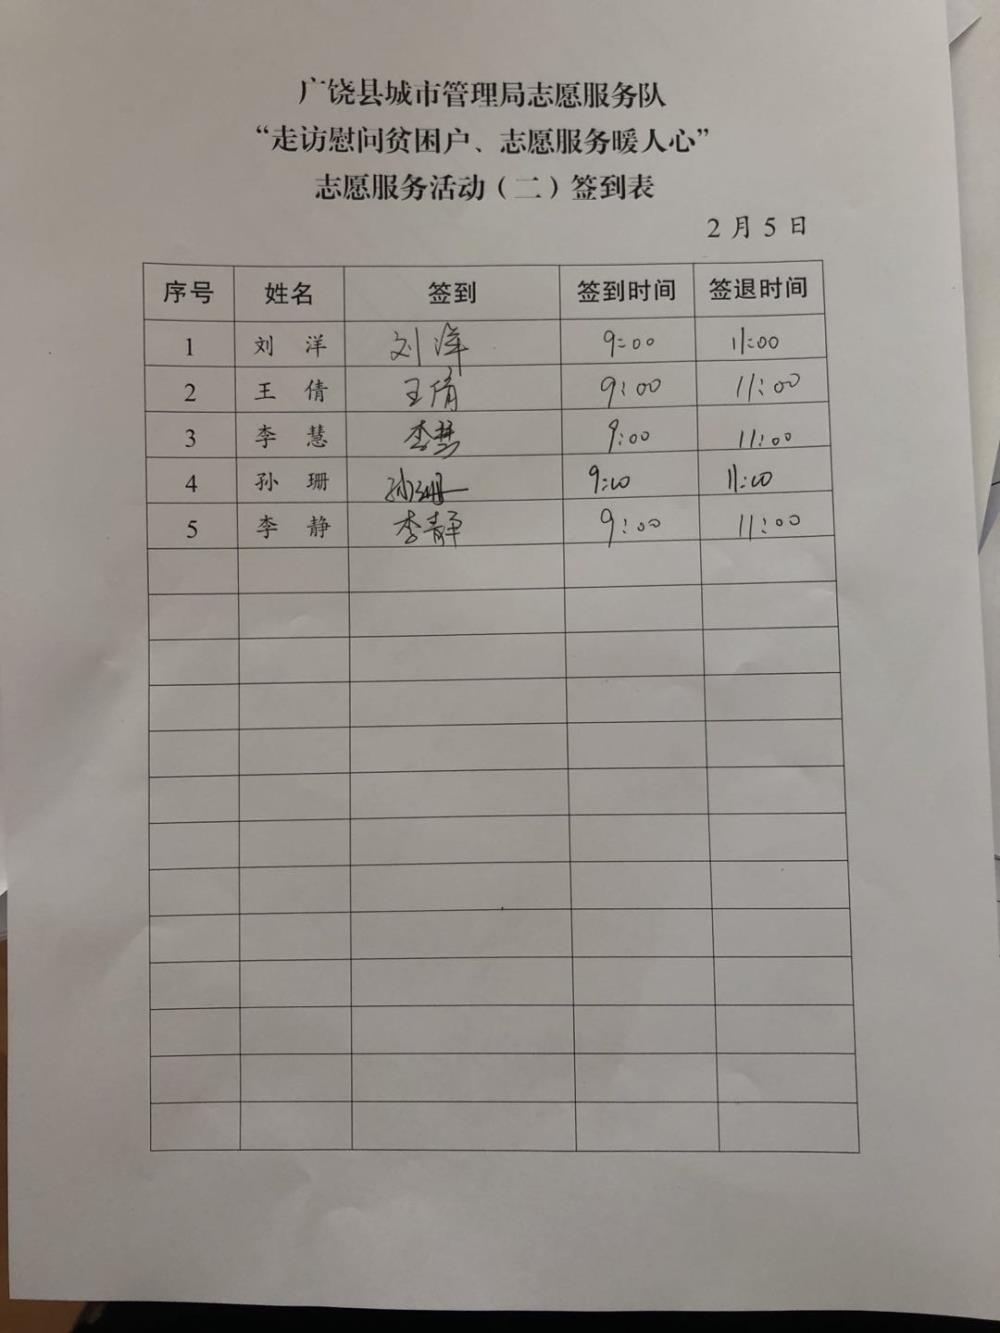 广饶县城市管理局志愿服务队
“走访慰问贫困户、志愿服务暖人心”
志愿服务活动（二）签到表
2月5日
序号 姓名 签到 签到时间 签退时间
1 刘 洋 刘洋 9:00 11:00
2 王 倩 王倩 9:00 11:00
3 李 慧 李慧 9:00 11:00
4 孙 珊 孙珊 9:00 11:00
5 李 静 李静 9:00 11:00